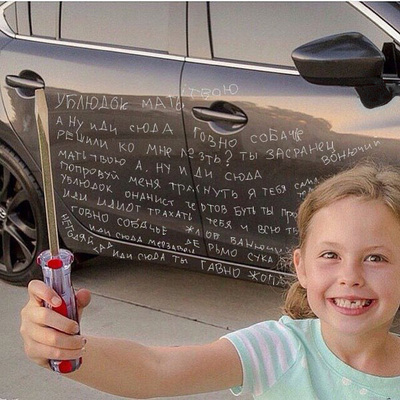 УБЛЮДОК МАТЬ ТВОЮ
А НУ ИДИ СЮДА ГОВНО СОБАЧЕ
РЕШИЛИ КО МНЕ ЛЕЗТЬ? ТЫ ЗАСРАНЕЦ ВОНЮЧИЙ
МАТЬ ТВОЮ А. НУ ИДИ СЮДА
ПОПРОБУЙ МЕНЯ ТРАХНУТЬ Я ТЕБЯ САМ
УБЛЮДОК ОНАНИСТ ЧЕРТОВ БУТЬ ТЫ ПРО
ИДИ ИДИОТ ТРАХАТЬ ТЕБЯ И ВСЮ
ГОВНО СОБАЧЬЕ
ИДИ СЮДА МЕРЗАВЕЦ ДЕРЬМО СУКА
ИДИ СЮДА ТЫ ГАВНО ЖОПА